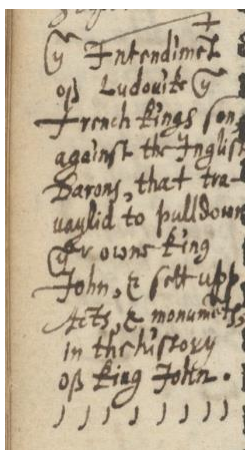 yͤ Intendimēt
off Ludovike yͤ
french kings son,
against the Inglish
Barons, that tra-
vaylid to pulldown
yͤr owne king
John, & sett upp.
Acts, & monumēts,
in the history
off king John.